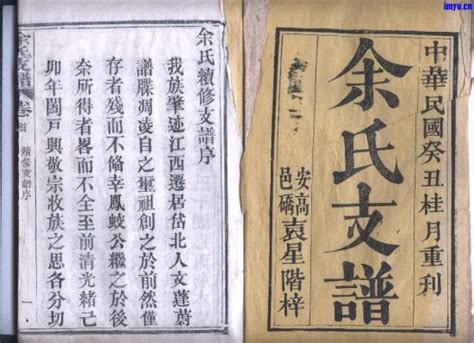 imyu.cn
中華民國癸丑桂月重刊
余氏支譜
安邑高碼袁星階梓
余氏續修支譜序
我族肇迹江西遷居岱北人文蓬蔚
譜牒凋凌自之璽祖創之於前然僅
存者殘而不偹幸鳳蛟公繼之於後
柰所得者畧而不全至前清光緒己
卯年閤戶興敬宗收族之思各分切
余氏支譜 卷首 續修支譜序 一